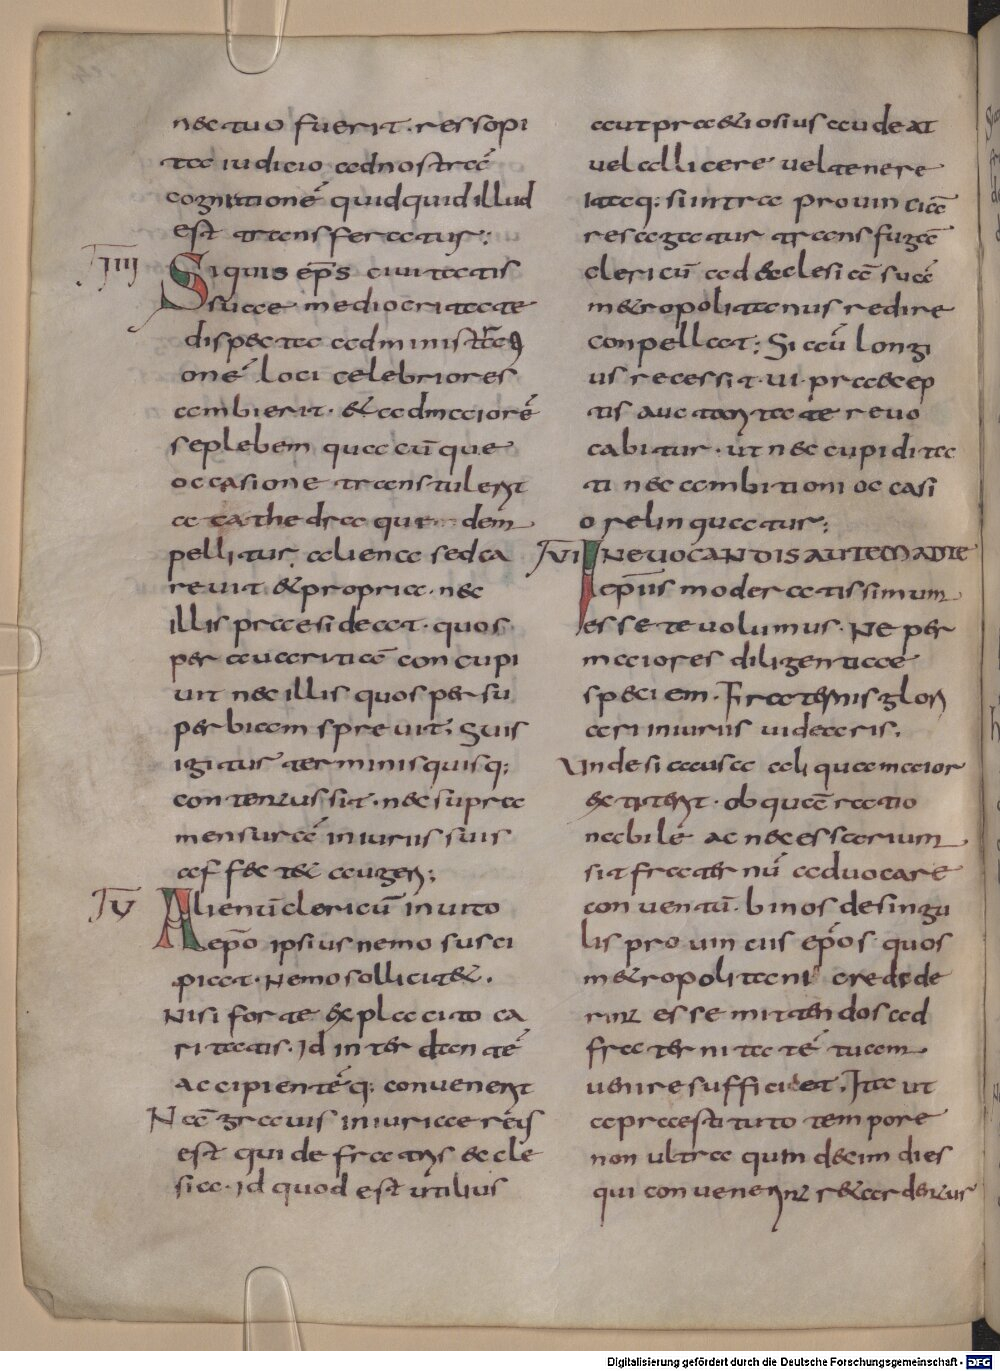 nec tuo fuerit. res sopi
ta iudicio ad nostrā
cognitionē quidquid illud
est transferatur;
IIII Si quis ep̄s ciuitatis
suae mediocritate
despecta administrati
onē loci celebrioris
ambierit. & ad maiorē
se plebem quacūque
occasione transtulerit
a cathedra quidem
pellitur aliena sed ca
rebit & propria. nec
illis praesideat. quos
per auaritiā concupi
uit nec illis quos per su
perbiam spreuit; Suis
igitur terminis quisq;
contentus sit. nec supra
mensurā iniuriis suis
affectet augeri;
V Alienū clericū inuito
ep̄o ipsius nemo susci
piat. Nemo sollicitet.
Nisi forte ex placito ca
ritatis. Id inter dantē
accipientēq; conuenerit
Nā grauis iniuriae reus
est qui de fratris eccle
sia. id quod est utilius
aut praetiosius audeat
uel allicere uel tenere
Itaq; si intra prouinciā
res agatur transfugā
clericū ad ecclesiā suā
metropolitanus redire
conpellat; Si aū longi
us recessit. tui praecep
tis auctoritate reuo
cabitur. ut nec cupidita
ti nec ambitioni occasi
o relinquatur;
VI In euocandis autem ad te
ep̄iis moderatissimum
esse te uolumus. Ne per
maiores diligentiae
speciem. Fraternis glori
ari iniuriis uidearis.
Unde si causa aliqua maior
extiterit. ob quā ratio
nabile ac necessarium
sit fraternū aduocare
conuentū. binos de singu
lis prouinciis ep̄os quos
metropolitani credide
rint esse mittendos ad
fraternitatē tuam
uenire sufficiat. Ita ut
a praestituto tempore
non ultra quindecim dies
qui conuenerint retardentur
Digitalisierung gefördert durch die Deutsche Forschungsgemeinschaft - DFG